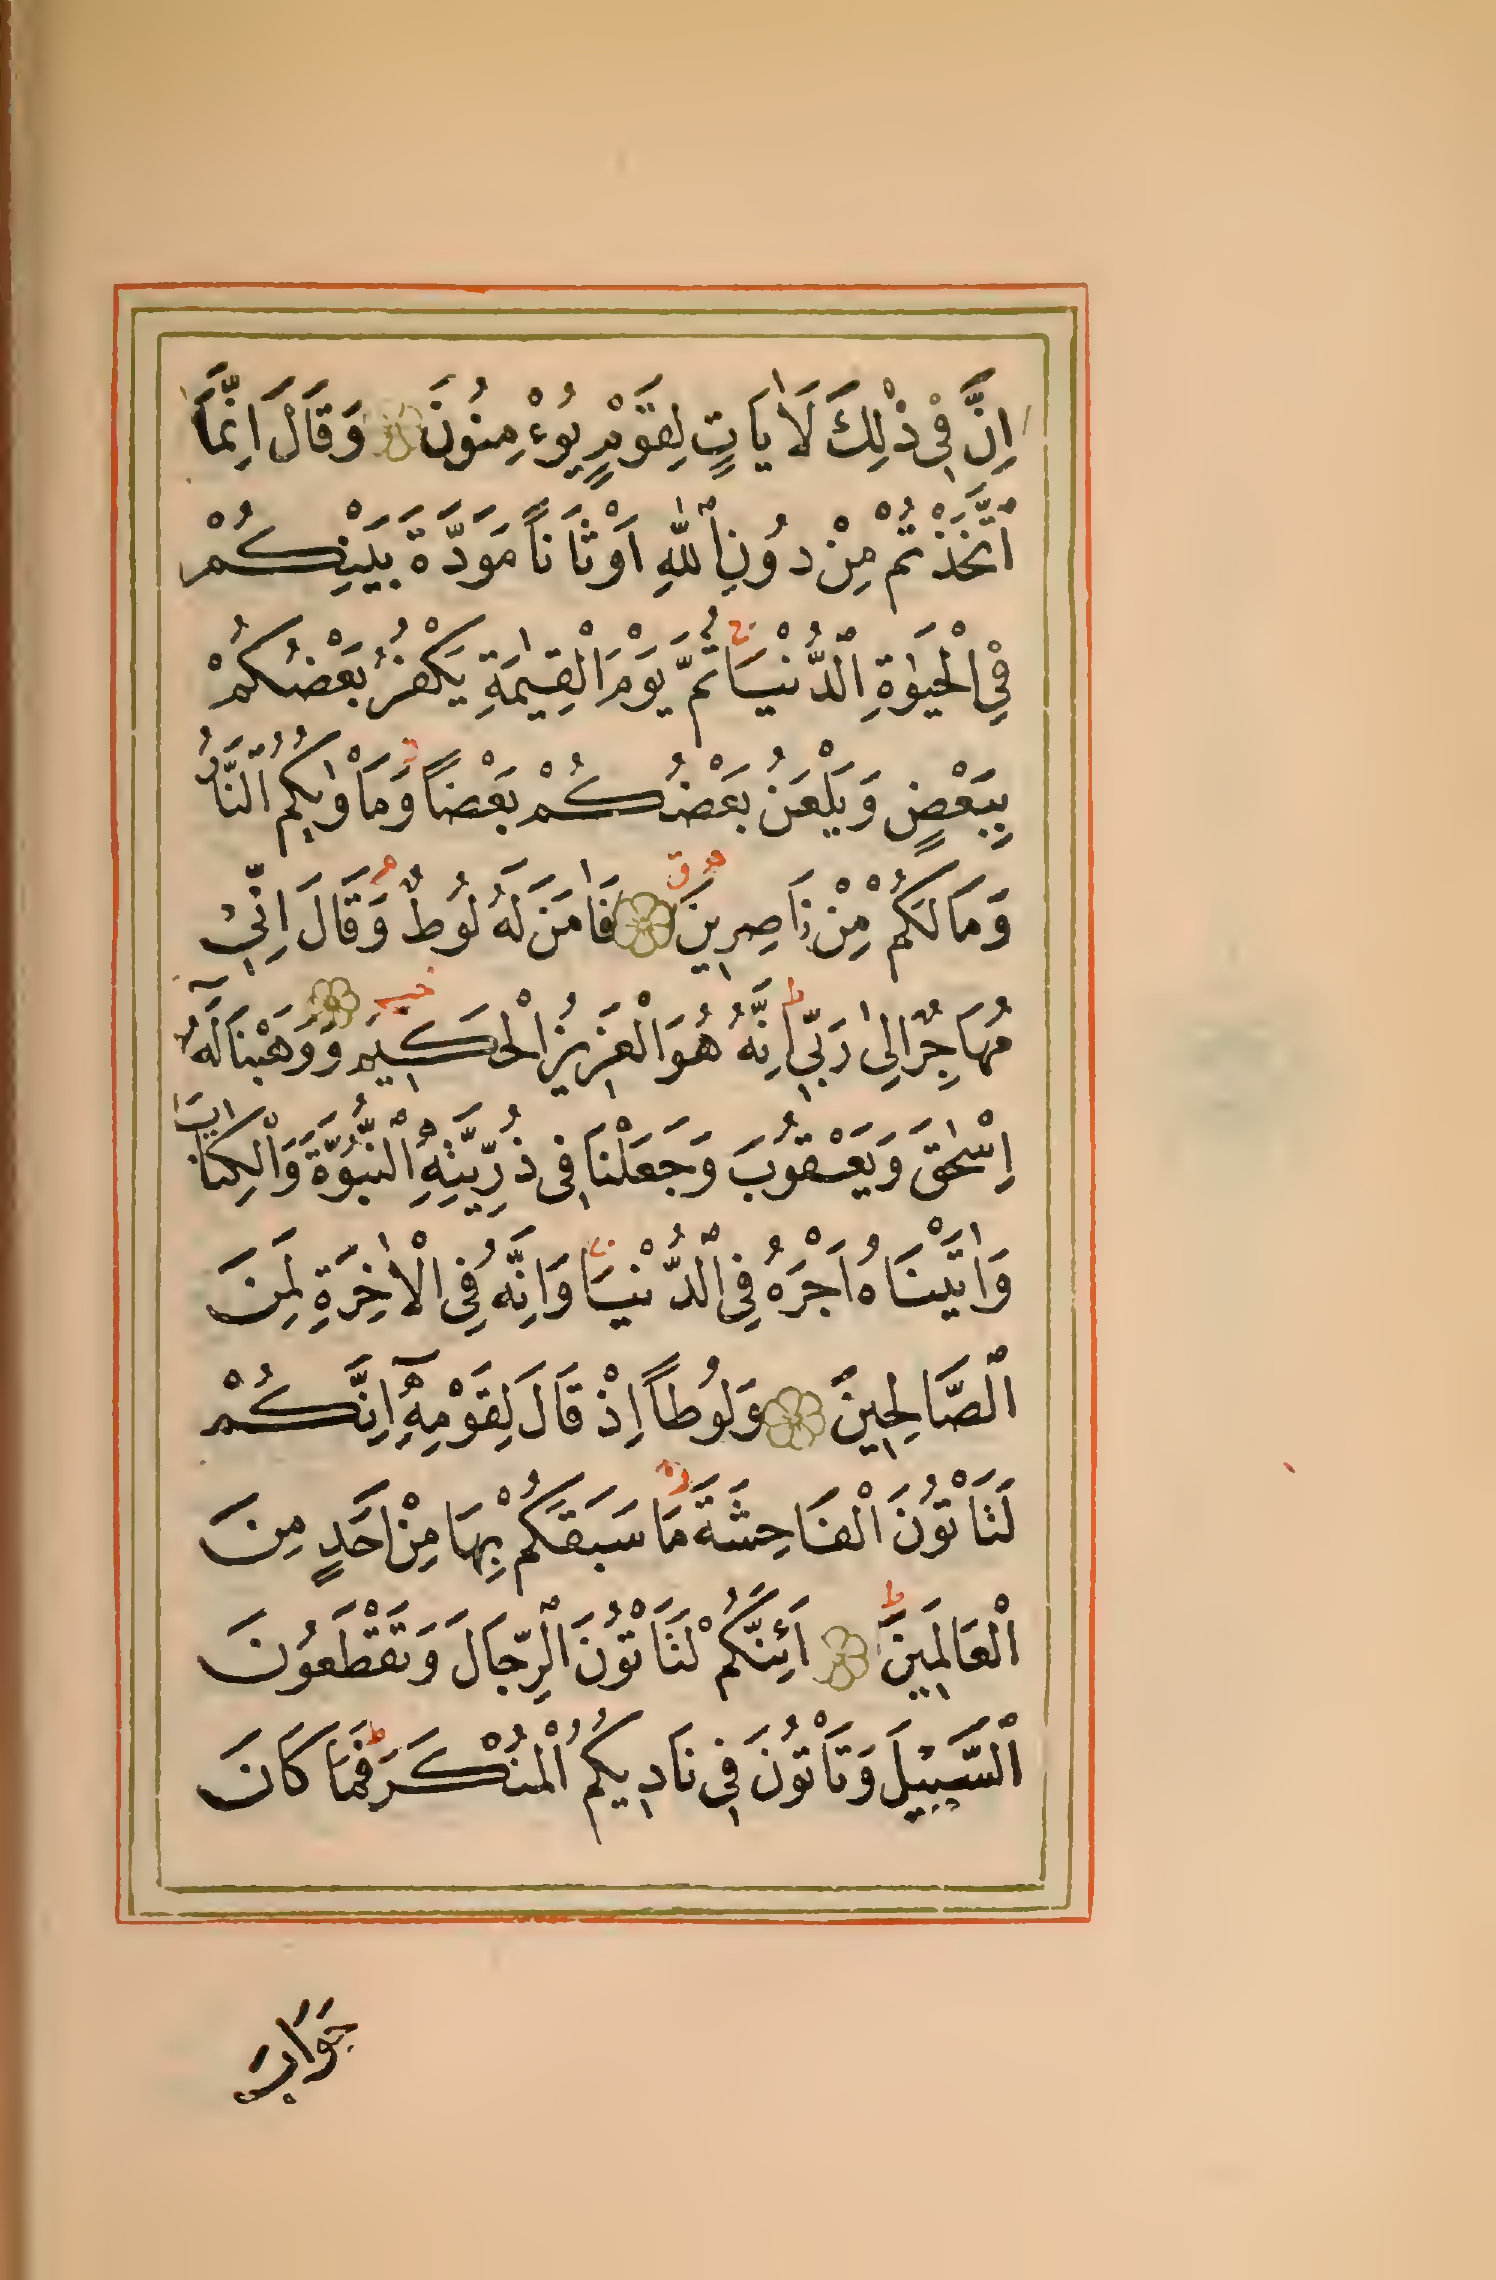 اِنَّ فِي ذٰلِكَ لَاٰيَاتٍ لِقَوْمٍ يُوءْمِنُونَ وَقَالَ اِنَّمَا
اتَّخَذْتُمْ مِنْ دُونِ اللّٰهِ اَوْثَانًا مَوَدَّةَ بَيْنِكُمْ
فِي الْحَيٰوةِ الدُّنْيَا ثُمَّ يَوْمَ الْقِيٰمَةِ يَكْفُرُ بَعْضُكُمْ
بِبَعْضٍ وَيَلْعَنُ بَعْضُكُمْ بَعْضًا وَمَاْوٰيكُمُ النَّارُ
وَمَا لَكُمْ مِنْ نَاصِرِينَ فَاٰمَنَ لَهُ لُوطٌ وَقَالَ اِنِّي
مُهَاجِرٌ اِلٰى رَبِّي اِنَّهُ هُوَ الْعَزِيزُ الْحَكِيمُ وَوَهَبْنَا لَهُ
اِسْحٰقَ وَيَعْقُوبَ وَجَعَلْنَا فِي ذُرِّيَّتِهِ النُّبُوَّةَ وَالْكِتَابَ
وَاٰتَيْنَاهُ اَجْرَهُ فِي الدُّنْيَا وَاِنَّهُ فِي الْاٰخِرَةِ لَمِنَ
الصَّالِحِينَ وَلُوطًا اِذْ قَالَ لِقَوْمِهِ اِنَّكُمْ
لَتَاْتُونَ الْفَاحِشَةَ مَا سَبَقَكُمْ بِهَا مِنْ اَحَدٍ مِنَ
الْعَالَمِينَ اَئِنَّكُمْ لَتَاْتُونَ الرِّجَالَ وَتَقْطَعُونَ
السَّبِيلَ وَتَاْتُونَ فِي نَادِيكُمُ الْمُنْكَرَ فَمَا كَانَ
جَوَابَ